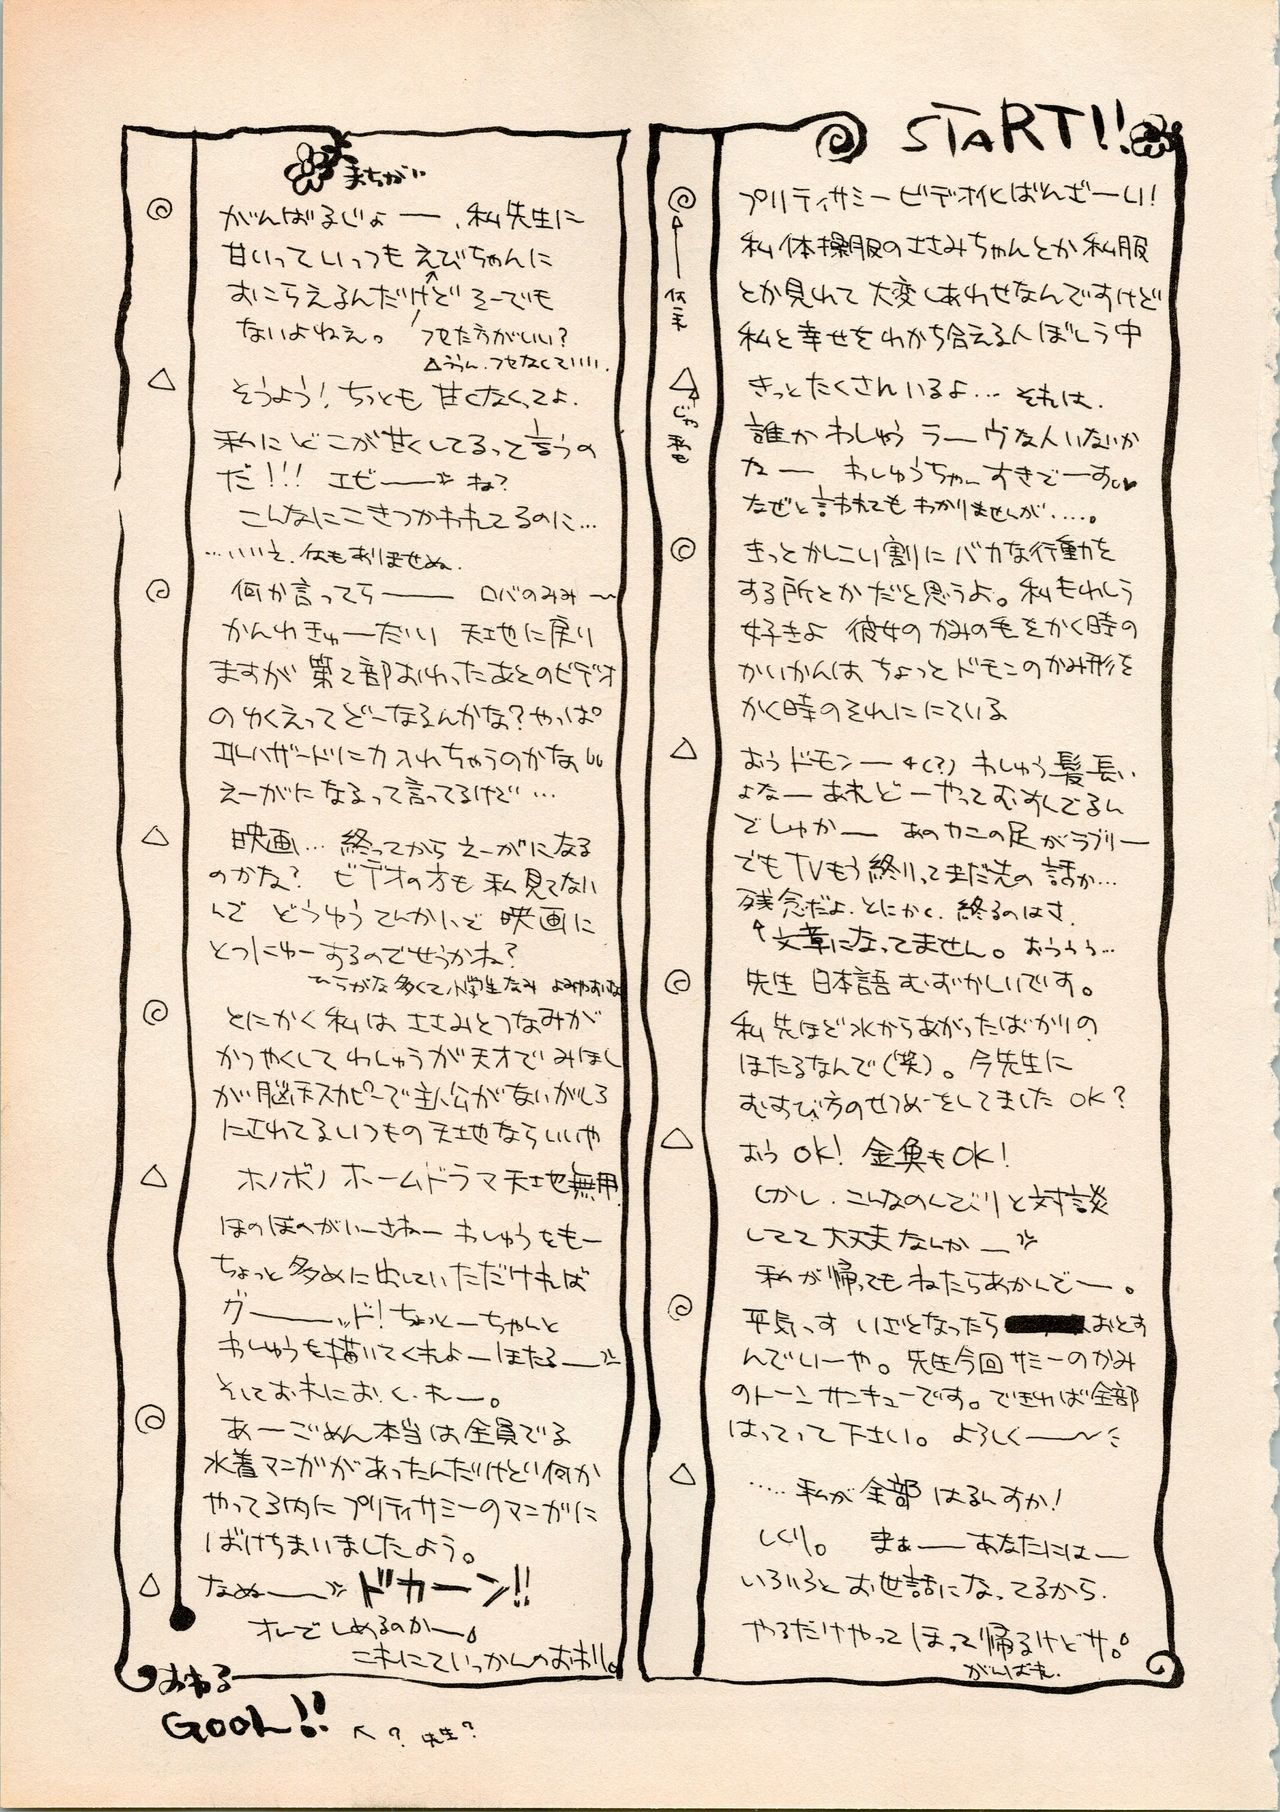 START!!
プリティサミービデオ化とばんざーい!
私 体操服のささみちゃんとか 私服
とか見れて 大変しあわせなんですけど
私と幸せをわかち合える人ぼしう中
きっとたくさんいるよ… それは、
誰か わしゅう ラーヴな人いないか
なー わしゅうちゃーすきでーす♥
なぜと言われてもわかりませんが……。
きっとかしこい割にバカな行動を
する所とかだと思うよ。私もわしう
好きよ 彼女の かみの毛をかく時の
かいかんは ちょっと ドモンのかみ形を
かく時のそれに にている
おう ドモンー (?) わしゅう 髪長い
よなー あれ どーやってむすんでるん
でしゅかー あのカニの足がラブリー
でもTVもう終りってまだ先の話か…
残念だよ. とにかく. 終るのはさ.
↑文章になってません。おううう…
先生 日本語 むずかしいです。
私 先ほど水からあがったばかりの
ほたるなんで(笑)。今先生に
むすび方のせつめーをしてました OK?
おう OK! 金魚もOK!
しかし. こんなのんびりと対談
してて大丈夫なんかー
私が帰ってもねたらあかんでー。
平気っす いざとなったら おとす
んでいーや。先生今回 サミーのかみ
のトーン サンキューです。できれば全部
はってって下さい。よろしくー〜
…… 私が全部 はるんすか!
しくり。 まぁー あなたにはー
いろいろと お世話になってるから.
やるだけやって ほって帰るけどサ。
がんばれ.
まちがい
がんばるじょー、私先生に
甘いって いっつも えびちゃんに
おこらえるんだけど そーでも
ないよねえ。 フセた方がいい?
△ううん. フセなくていいい.
そうよう! ちっとも 甘くなくってよ.
私にどこが甘くしてるって言うの
だ!!! エビー ね?
こんなにこきつかわれてるのに…
…いいえ. 何もありませぬ.
何か言ってらー ロバのみみ〜
かんわきゅーだい 天地に戻り
ますが 第2部おわったあとのビデオ
のゆくえってどーなるんかな? やっぱ
エルハザードに力入れちゃうのかな
えーがになるって言ってるけど…
映画… 終ってから えーがになる
のかな? ビデオの方も 私見てない
んで どうゆう てんかいで 映画に
とつにゅーするのでせうかね?
ひらがな多くて小学生なみ よみやすいな
とにかく 私は ささみとつなみが
かつやくして わしゅうが天才で みほし
が脳天スカピーで主人公がないがしろ
にされてるいつもの天地ならいいや
ホノボノ ホームドラマ 天地無用
ほのぼのがいーさねー わしゅうをもー
ちょっと多めに出していただければ
グーッド! ちょっとーちゃんと
わしゅうを描いてくれよーほたるー
そしてお木にお.く.れー。
あーごめん本当は全員でる
水着マンガがあったんだけどい何か
やってる内にプリティサミーのマンガに
ばけちまいましたよう。
なぬー ドカーン!!
オレでしめるのかー。
これにていっかんのおわり。
おわる
GOOL!! ↖? 先生?